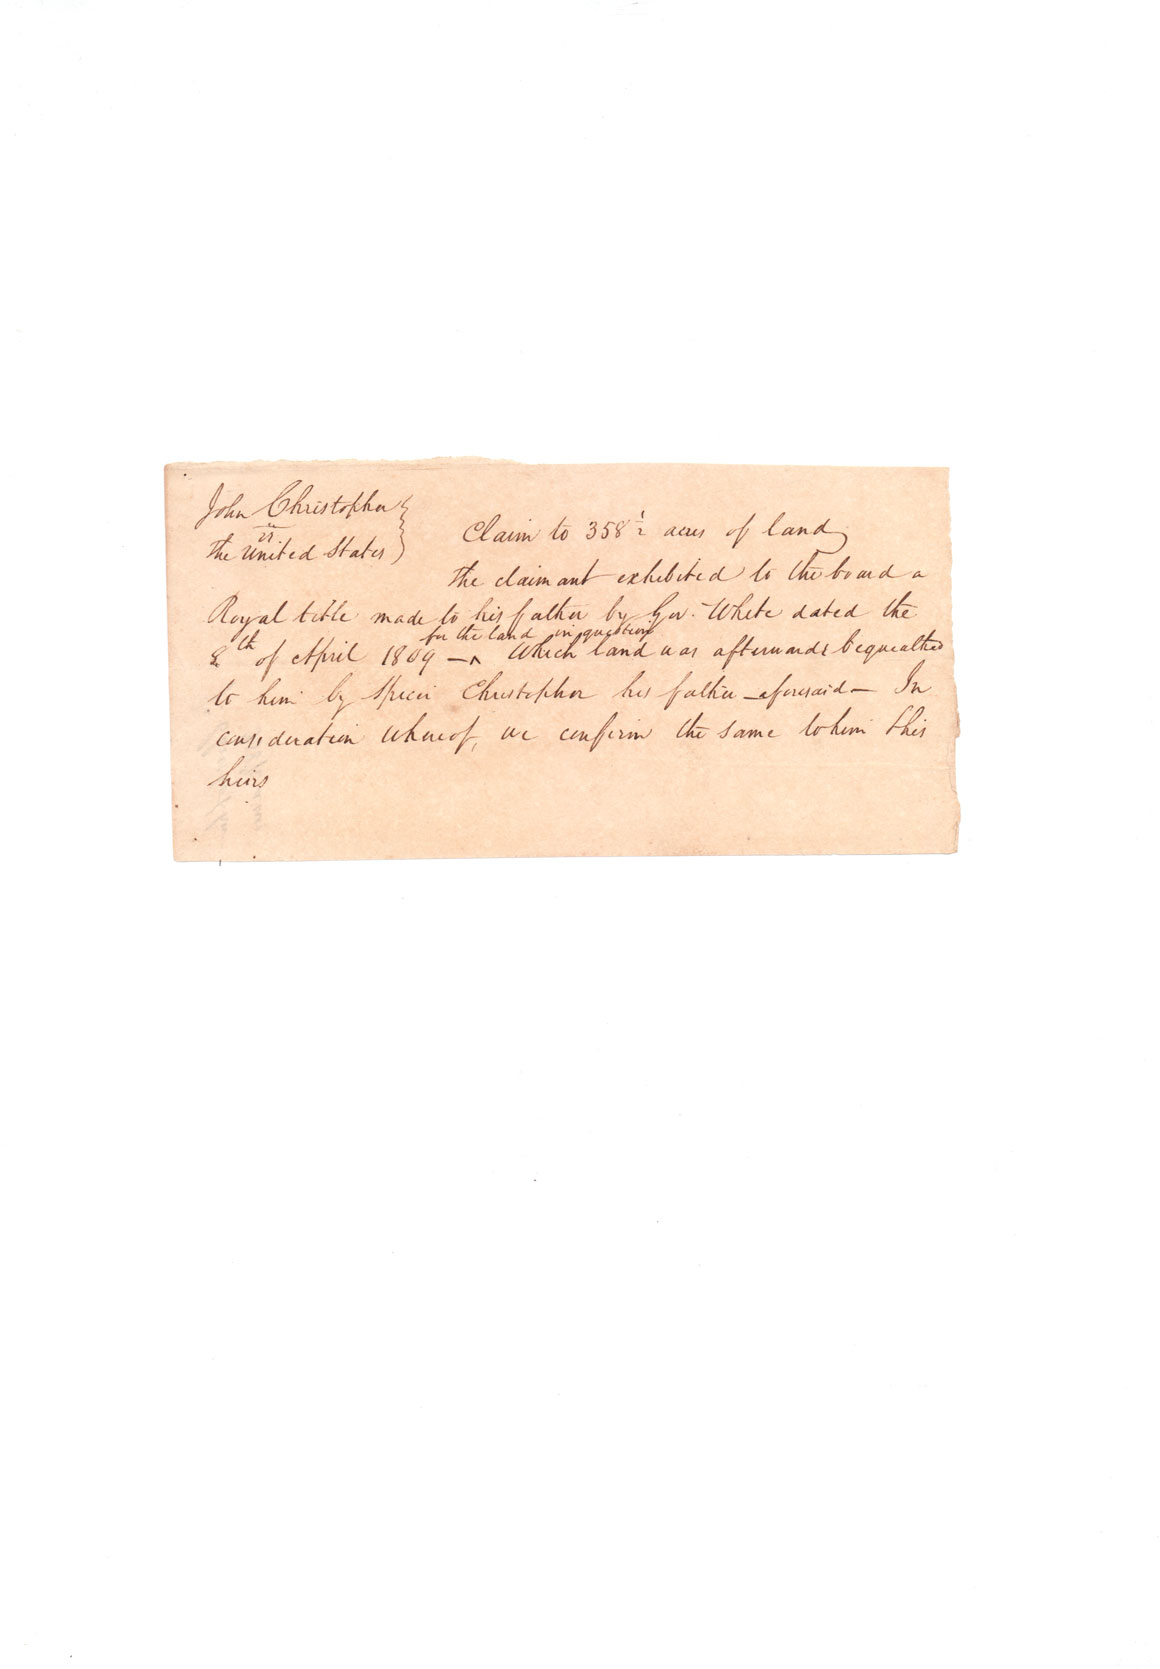 John Christopher
vs
the United States
Claim to 358 ½ acres of land
the claimant exhibited to the board a
Royal title made to his father by Gov. White dated the
for the land in question
8th of April 1809 — ^ Which land was afterwards bequeathed
to him by Spicer Christopher his father — aforesaid — In
consideration whereof, we confirm the same to him & his
heirs